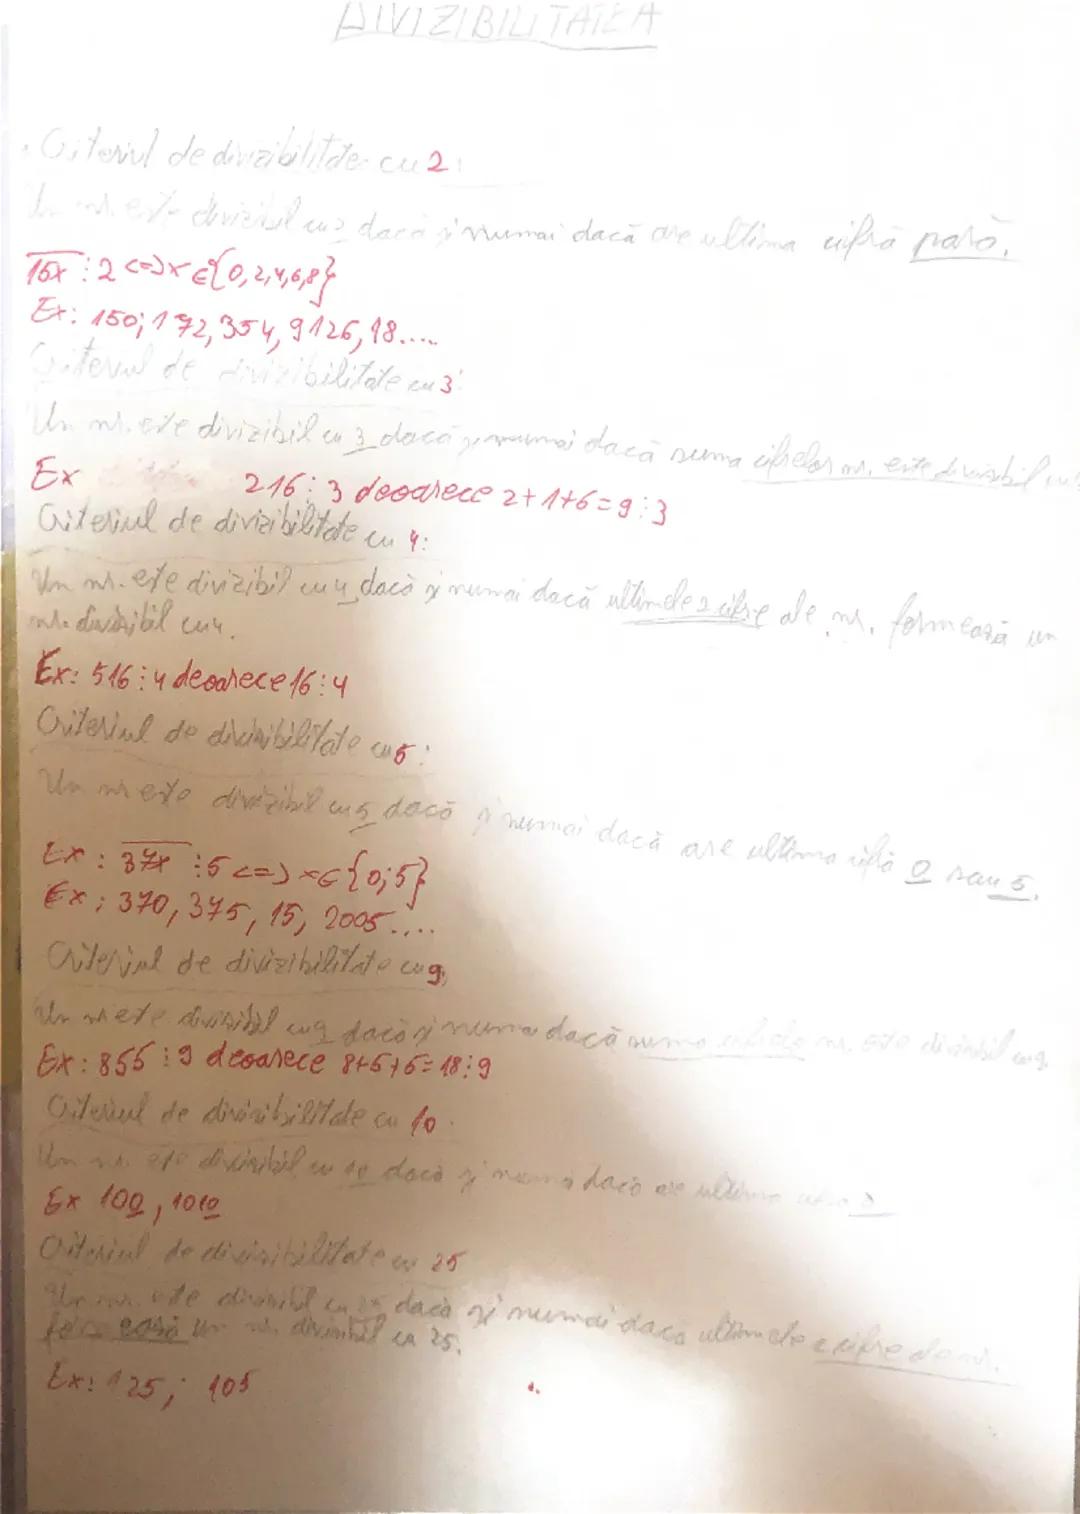 DIVIZIBILITATEA
Criteriul de divizibilitate cu 2:
Un nr. este divizibil cu 2 dacă și numai dacă are ultima cifră pară.
15x ⋮ 2 <=> x ∈ {0,2,4,6,8}
Ex: 150; 172, 354, 9126, 18.....
Criteriul de divizibilitate cu 3:
Un nr. este divizibil cu 3 dacă și numai dacă suma cifrelor nr. este divizibil cu 3
Ex 216 ⋮ 3 deoarece 2+1+6=9 ⋮ 3
Criteriul de divizibilitate cu 4:
Un nr. este divizibil cu 4 dacă și numai dacă ultimele 2 cifre ale nr. formează un
nr. divizibil cu 4.
Ex: 516 ⋮ 4 deoarece 16 ⋮ 4
Criteriul de divizibilitate cu 5:
Un nr este divizibil cu 5 dacă și numai dacă are ultima cifră 0 sau 5.
Ex: 37x ⋮ 5 <=> x ∈ {0;5}
Ex: 370, 375, 15, 2005....
Criteriul de divizibilitate cu 9:
Un nr este divizibil cu 9 dacă și numai dacă suma cifrelor nr. este divizibil cu 9.
Ex: 855 ⋮ 9 deoarece 8+5+5=18 ⋮ 9
Criteriul de divizibilitate cu 10
Un nr. este divizibil cu 10 dacă și numai dacă are ultima cifră 0
Ex 100, 1010
Criteriul de divizibilitate cu 25
Un nr. este divizibil cu 25 dacă și numai dacă ultimele 2 cifre ale nr.
formează un nr. divizibil cu 25.
Ex: 125; 105